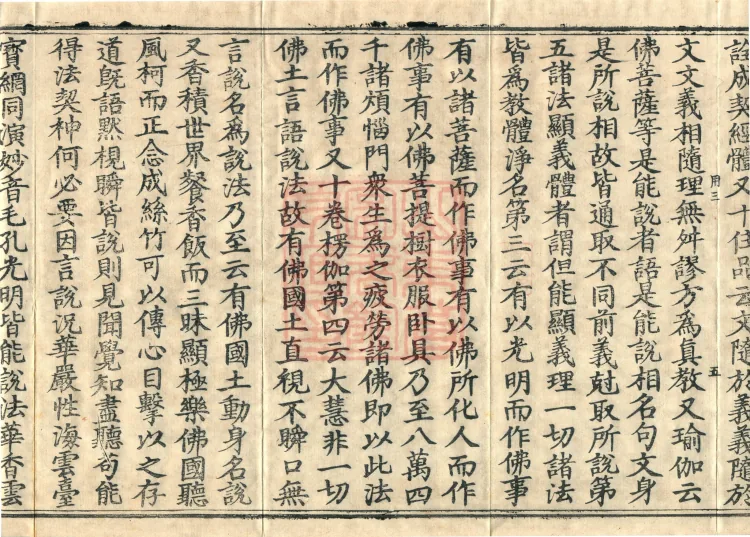 詮成契經體又十住品云文隨於義義隨於
文文義相隨理無舛謬方爲真教又瑜伽云
佛菩薩等是能說者語是能說相名句文身
是所說相故皆通取不同前義尅取所說第
五諸法顯義體者謂但能顯義理一切諸法
皆爲教體淨名第三云有以光明而作佛事
用三
五
有以諸菩薩而作佛事有以佛所化人而作
佛事有以佛菩提樹衣服卧具乃至八萬四
千諸煩惱門衆生爲之疲勞諸佛即以此法
而作佛事又十卷楞伽第四云大慧非一切
佛土言語說法故有佛國土直視不瞬口無
言說名爲說法乃至云有佛國土動身名說
又香積世界飡香飯而三昧顯極樂佛國聽
風柯而正念成絲竹可以傳心目擊以之存
道旣語黙視瞬皆說則見聞覺知盡聽句能
得法契神何必要因言說況華嚴性海雲臺
寶網同演妙音毛孔光明皆能說法華香雲